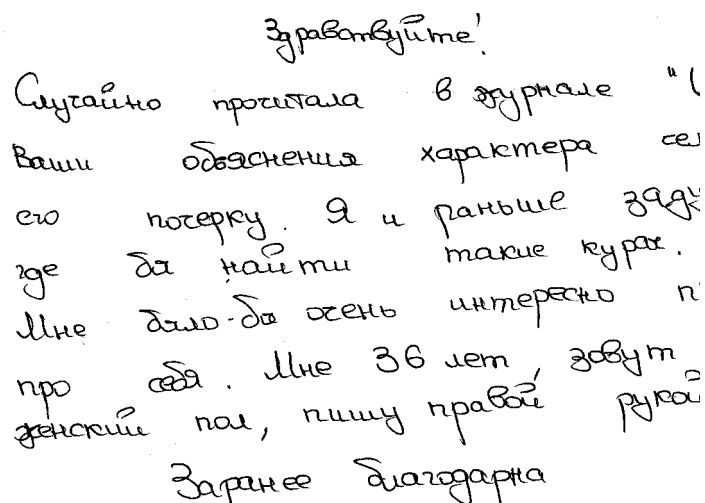 Здравствуйте!
Случайно прочитала в журнале "
Ваши объяснения характера
его почерку. Я и раньше
где бы найти такие курсы.
Мне было-бы очень интересно
про себя. Мне 36 лет, зовут
женский пол, пишу правой рукой
Заранее благодарна